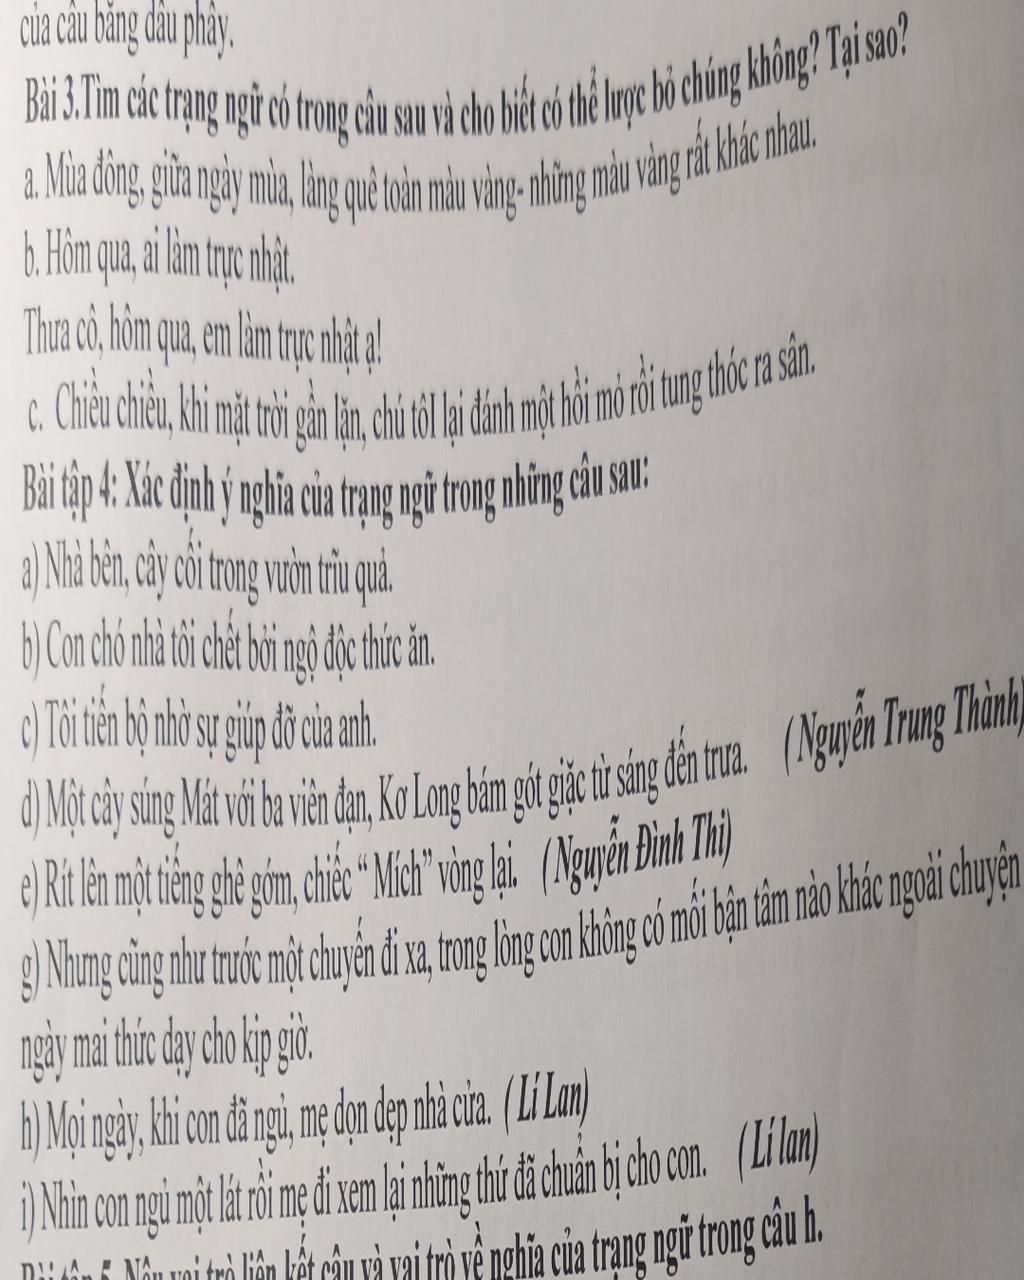 của câu bằng dấu phảy.
Bài 3.Tìm các trạng ngữ có trong câu sau và cho biết có thể lược bỏ chúng không? Tại sao?
a. Mùa đông, giữa ngày mùa, làng quê toàn màu vàng- những màu vàng rất khác nhau.
b. Hôm qua, ai làm trực nhật.
Thưa cô, hôm qua, em làm trực nhật ạ!
c. Chiều chiều, khi mặt trời gần lặn, chú tôI lại đánh một hồi mỏ rồi tung thóc ra sân.
Bài tập 4: Xác định ý nghĩa của trạng ngữ trong những câu sau:
a) Nhà bên, cây cối trong vườn trĩu quả.
b) Con chó nhà tôi chết bởi ngộ độc thức ăn.
c) Tôi tiến bộ nhờ sự giúp đỡ của anh.
d) Một cây súng Mát với ba viên đạn, Kơ Long bám gót giặc từ sáng đến trưa. ( Nguyễn Trung Thành)
e) Rít lên một tiếng ghê gớm, chiếc “ Mích” vòng lại. ( Nguyễn Đình Thi)
g) Nhưng cũng như trước một chuyến đi xa, trong lòng con không có mối bận tâm nào khác ngoài chuyện
ngày mai thức dạy cho kịp giờ.
h) Mọi ngày, khi con đã ngủ, mẹ dọn dẹp nhà cửa. ( Lí Lan)
i) Nhìn con ngủ một lát rồi mẹ đi xem lại những thứ đã chuẩn bị cho con. ( Lí lan)
Bài tập 5. Nêu vai trò liên kết câu và vai trò về nghĩa của trạng ngữ trong câu h.